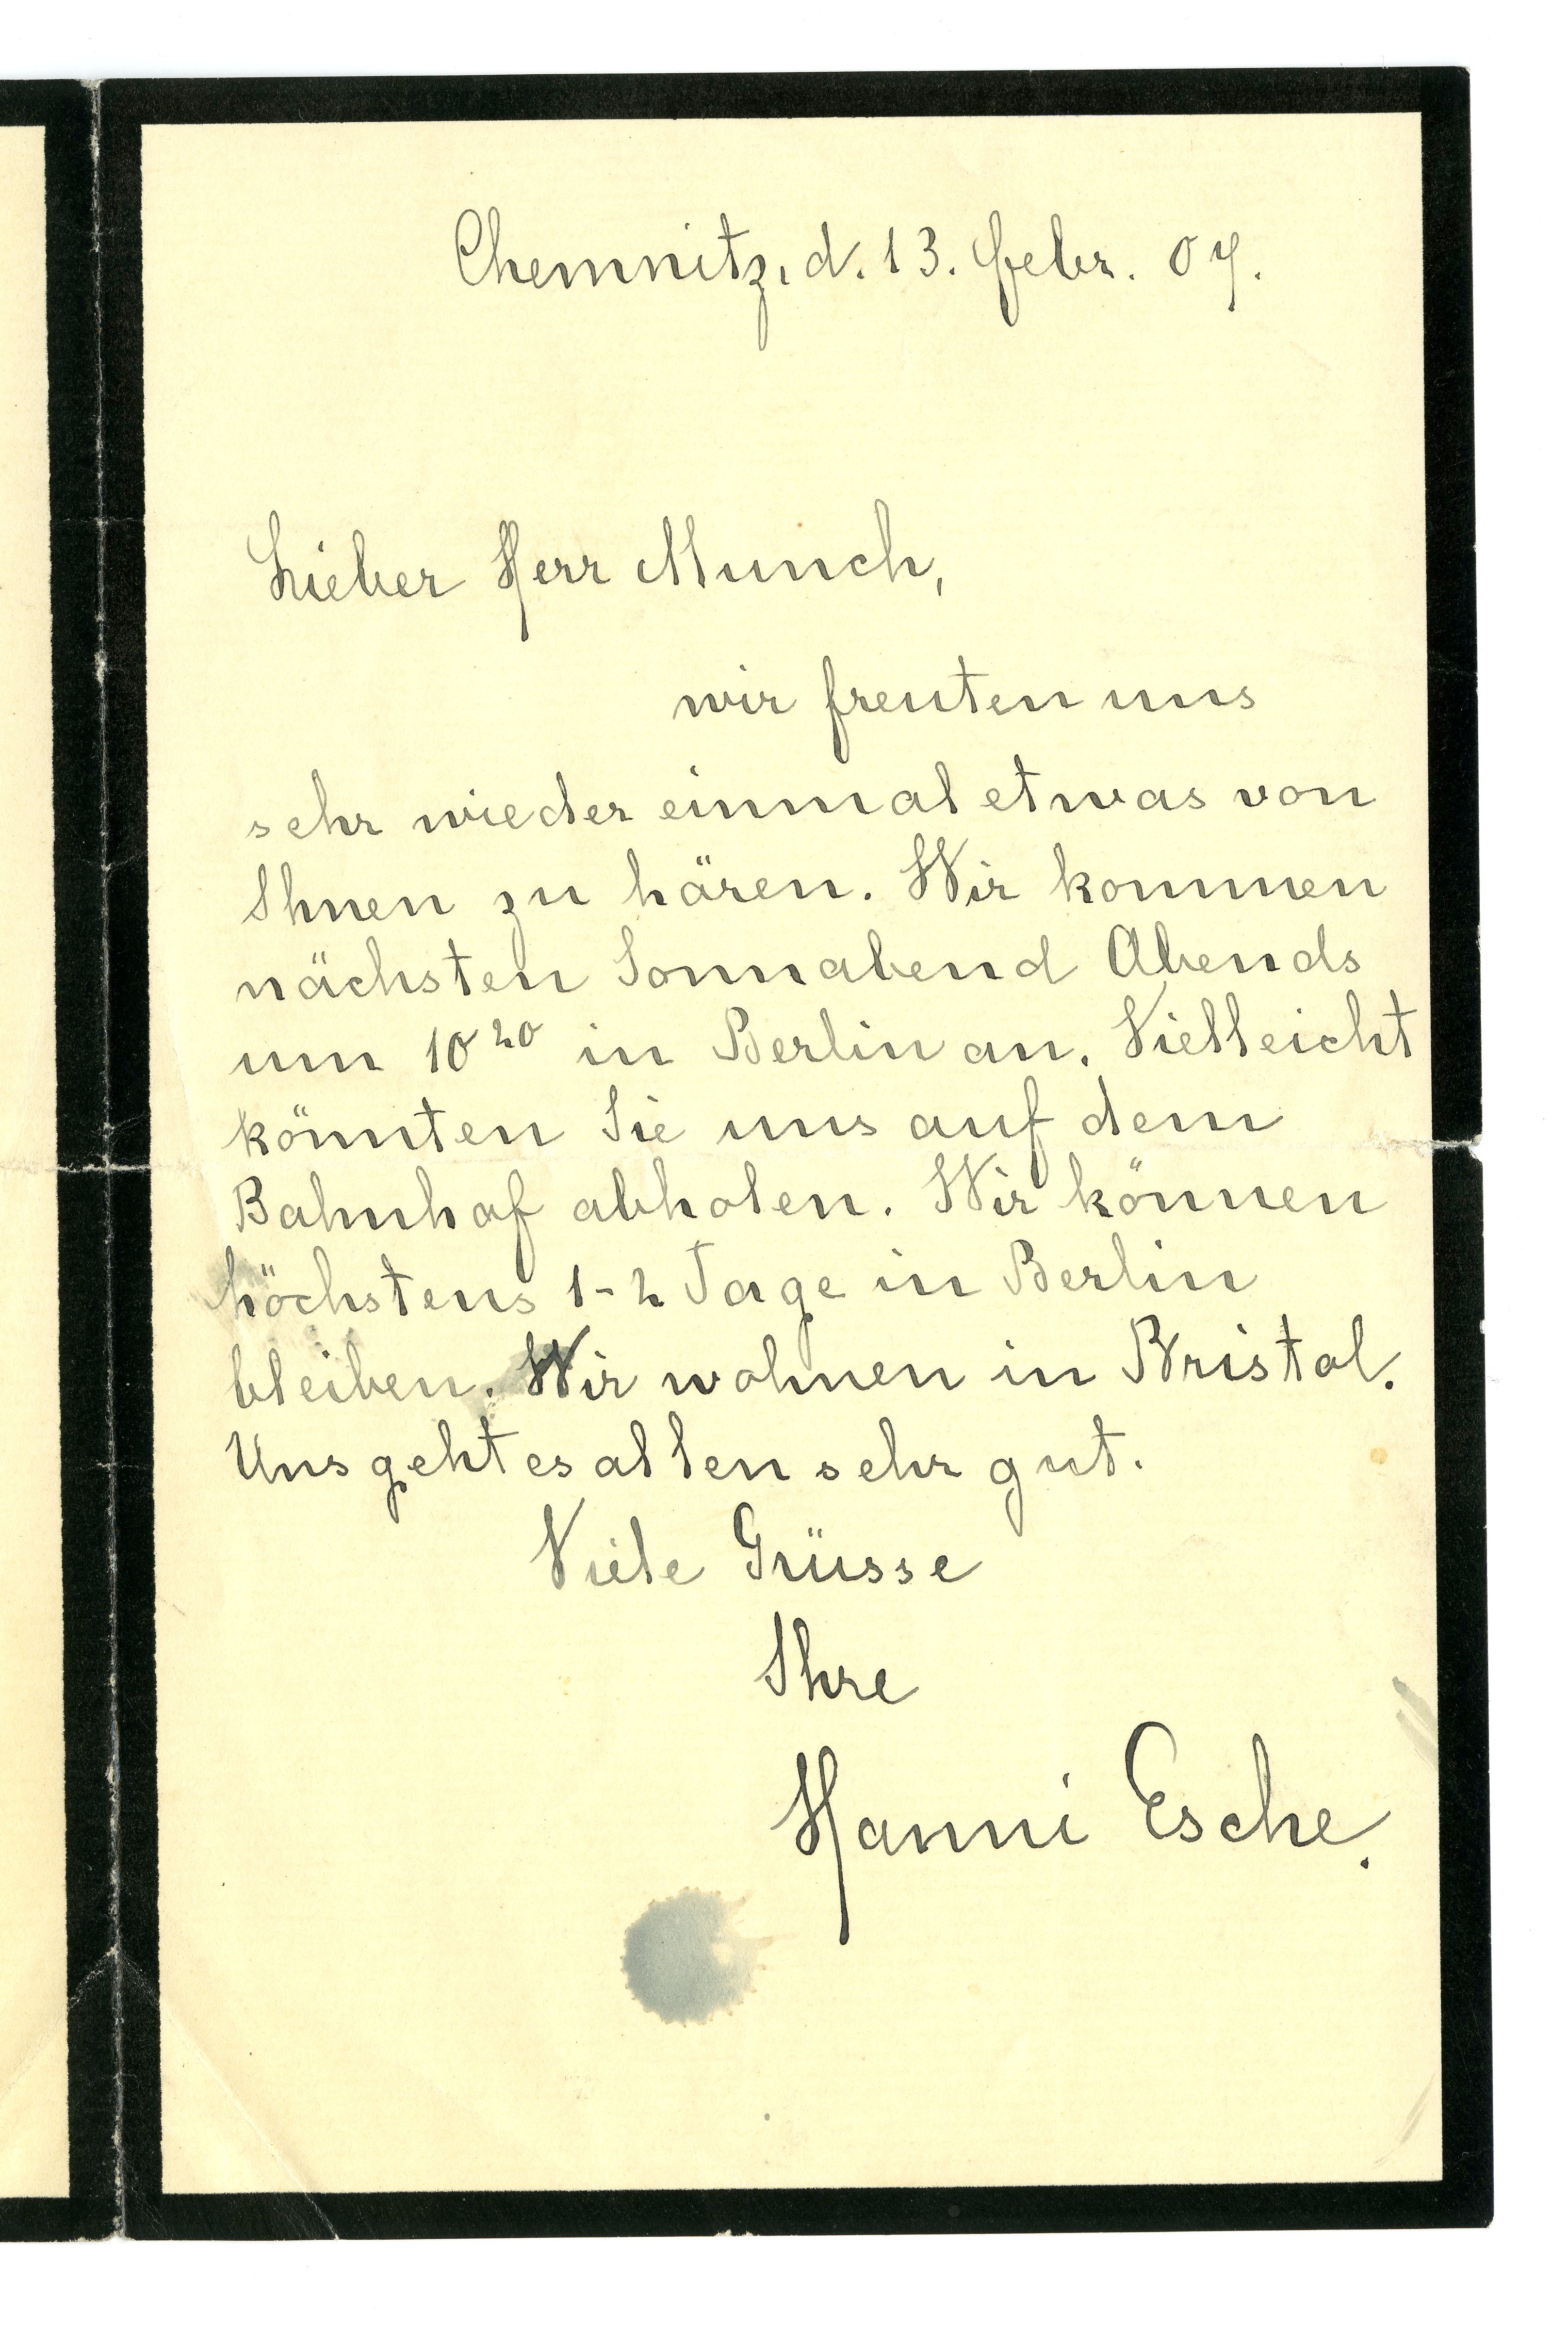 Chemnitz, d. 13. Febr. 07.
Lieber Herr Munch,
wir freuten uns
sehr wieder einmal etwas von
Ihnen zu hören. Wir kommen
nächsten Sonnabend Abends
um 10²⁰ in Berlin an. Vielleicht
könnten Sie uns auf dem
Bahnhof abholen. Wir können
höchstens 1-2 Tage in Berlin
bleiben. Wir wohnen in Bristol.
Uns geht es allen sehr gut.
Viele Grüsse
Ihre
Hanni Esche.